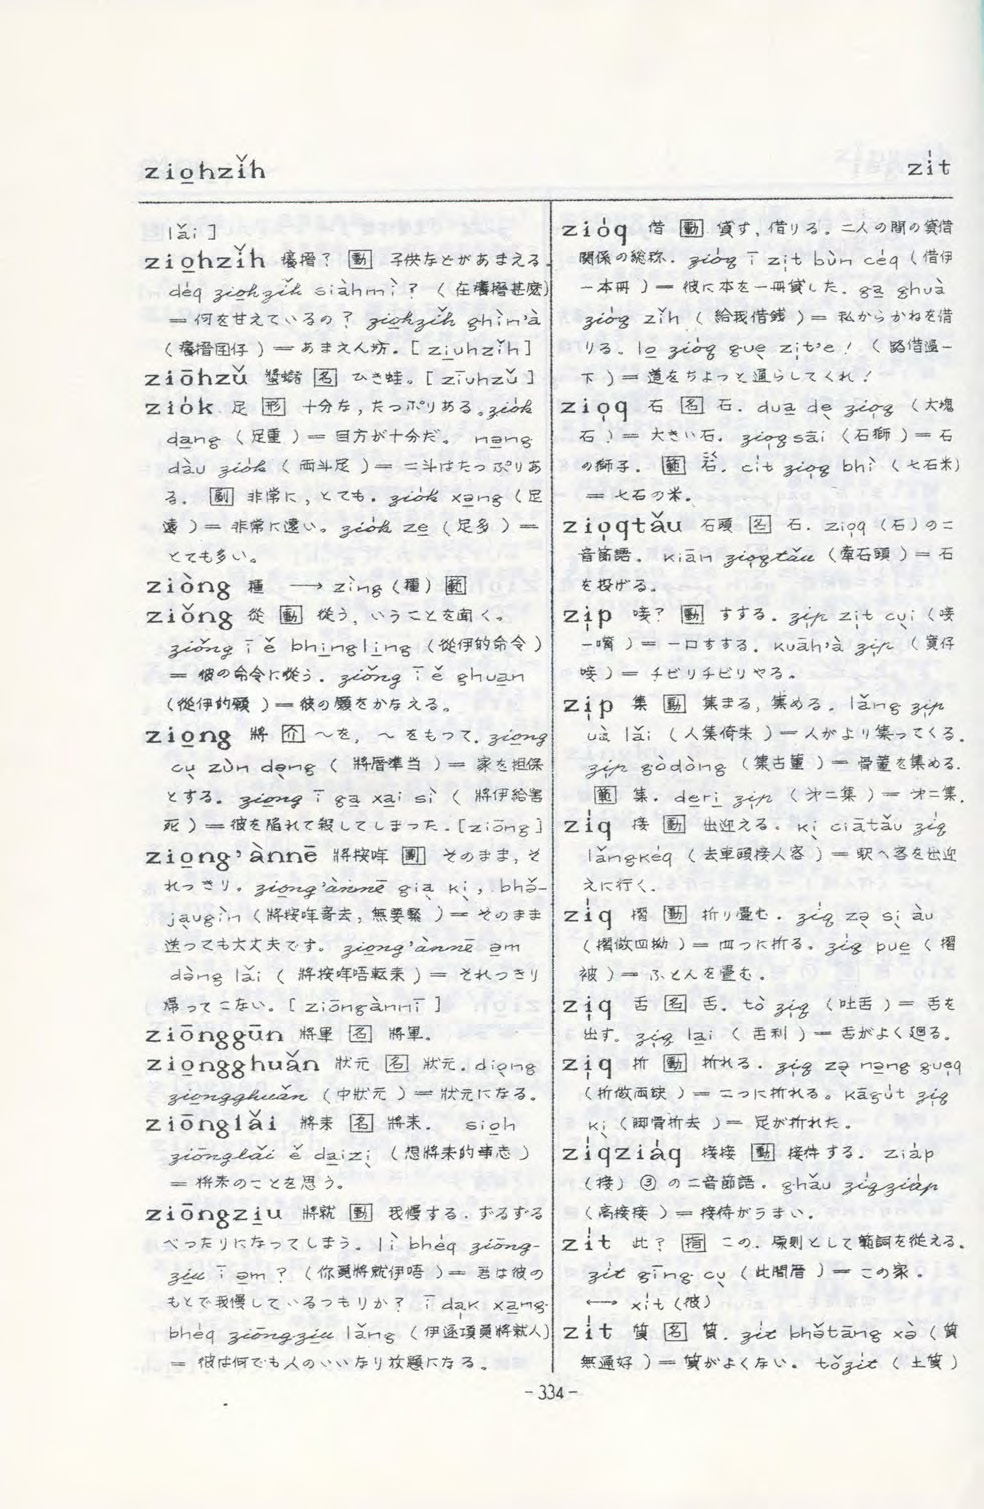 ziohzǐh
zı̍t
lǎi ]
ziohzǐh 癢㨴? 動 子供などがあまえる。
déq ziohzǐh siàhmì? (在癢㨴甚麼)
= 何を甘えているの? ziohzǐh ghìn'à
(癢㨴囝仔) = あまえん坊。[ziuhzǐh]
ziōhzǔ 蟾蜍 名 ひき蛙。[ziūhzǔ]
ziók 足 形 十分な, たっぷりある。ziók
dang (足重) = 目方が十分だ。 nəng
dàu ziók (両斗足) = 二斗はたっぷりあ
る。 副 非常に, とても。ziók xəng (足
遠) = 非常に遠い。ziók ze (足多) =
とても多い。
ziòng 種 → zìng (種) 範
ziǒng 從 動 從う, いうことを聞く。
ziǒng ī ě bhingling (從伊的命令)
= 彼の命令に從う。ziǒng ī ě ghuan
(從伊的願) = 彼の願をかなえる。
ziong 將 介 ～を, ～をもって. ziong
cu zùn dəng (將厝準当) = 家を担保
とする。ziong ī ga xai sì (將伊給害
死) = 彼を陥れて殺してしまった. [ziōng]
ziong'ànnē 將按哖 副 そのまま, そ
れっきり。ziong'ànnē gia ki, bhə̌-
jaugìn (將按哖寄去, 無要緊) = そのまま
送っても大丈夫です。ziong'ànnē əm
dàng lǎi (將按哖唔転来) = それっきり
帰ってこない。[ziōngànnī]
ziōnggūn 將軍 名 將軍.
ziongghuǎn 狀元 名 狀元. diong
ziongghuǎn (中狀元) = 狀元になる。
ziōnglǎi 將来 名 將来. sioh
ziōnglǎi ě daizi (想將来的事志)
= 将来のことを思う。
ziōngziu 將就 動 我慢する. ずるずる
べったりになってしまう。lì bhéq ziōng-
ziu ī əm? (你要將就伊唔) = 君は彼の
もとで我慢しているつもりか? ī dak xang
bhéq ziōngziu lǎng (伊逐項要將就人)
= 彼は何でも人のいいなり放題になる。
zióq 借 動 貸す, 借りる. 二人の間の貸借
関係の総称. zióq ī zit bùn céq (借伊
一本冊) = 彼に本を一冊貸した. ga ghuà
zióq zǐh (給我借銭) = 私からかねを借
りる。lo zióq gue zit'e! (路借過一
下) = 道をちょっと通らしてくれ!
zioq 石 名 石. dua de zioq (大塊
石) = 大きい石. zioqsāi (石獅) = 石
の獅子. 範 石. cit zioq bhì (七石米)
= 七石の米.
zioqtǎu 石頭 名 石. zioq (石)の二
音節語. kiān zioqtǎu (牽石頭) = 石
を投げる。
zip 唼? 動 すする. zip zit cui (唼
一嘴) = 一口すする. kuāh'à zip (寛仔
唼) = チビリチビリやる.
zip 集 動 集まる, 集める。lǎng zip
uà lǎi (人集倚来) = 人がより集ってくる.
zip gòdòng (集古董) = 骨董を集める.
範 集. deri zip (才二集) = 才二集.
ziq 接 動 出迎える. ki ciātǎu ziq
lǎngkéq (去車頭接人客) = 駅へ客を出迎
えに行く.
ziq 摺 動 折り畳む. ziq zə si àu
(摺做四拗) = 四つに折る. ziq pue (摺
被) = ふとんを畳む.
ziq 舌 名 舌. tò ziq (吐舌) = 舌を
出す. ziq lai (舌利) = 舌がよく廻る.
ziq 折 動 折れる. ziq zə nəng gueq
(折做両蕨) = 二つに折れる. kāgút ziq
ki (脚骨折去) = 足が折れた.
ziqziáq 接接 動 接待する. ziáp
(接) ③ の二音節語. ghǎu ziqziáp
(高接接) = 接待がうまい.
zit 此? 指 この. 原則として範詞を從える.
zit gīng cu (此間厝) = この家.
←→ xit (彼)
zit 質 名 質. zit bhətāng xə̀ (質
無通好) = 質がよくない. tǒzit (土質)
- 334 -